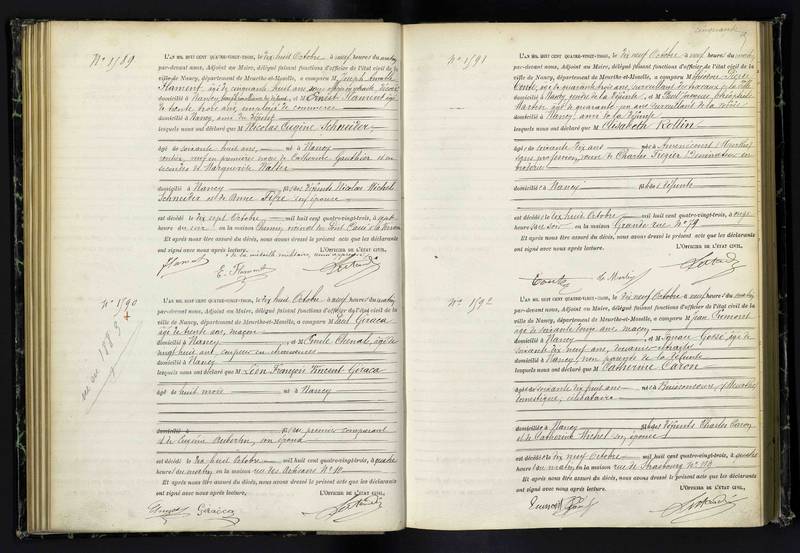 N° 1589
L'AN MIL HUIT CENT QUATRE-VINGT-TROIS, le dix huit Octobre à neuf heures du matin
par-devant nous, Adjoint au Maire, délégué faisant fonctions d'officier de l'état civil de la
ville de Nancy, département de Meurthe-et-Moselle, a comparu M Joseph
Flament âgé de cinquante huit ans
domicilié à Nancy, et M Ernest Flament âgé
de trente trois ans, employé de commerce
domicilié à Nancy ami du défunt
lesquels nous ont déclaré que M Nicolas Eugène Schneider
âgé de soixante huit ans, né à Nancy
rentier, veuf en premières noces de Catherine Gauthier et en
secondes de Marguerite Walter
domicilié à Nancy fils des défunts Nicolas Michel
Schneider et de Anne son épouse
est décédé le dix sept Octobre mil huit cent quatre-vingt-trois, à sept
heures du soir en la maison
Et après nous être assuré du décès, nous avons dressé le présent acte que les déclarants
ont signé avec nous après lecture. L'OFFICIER DE L'ÉTAT CIVIL,
de la médaille militaire
Flament
E. Flament
N° 1590
L'AN MIL HUIT CENT QUATRE-VINGT-TROIS, le dix huit Octobre à neuf heures du matin
par-devant nous, Adjoint au Maire, délégué faisant fonctions d'officier de l'état civil de la
ville de Nancy, département de Meurthe-et-Moselle, a comparu M Paul Giraca
âgé de trente six, maçon
domicilié à Nancy, et M Emile Chenal, âgé de
vingt huit ans, coupeur en chaussures
domicilié à Nancy
lesquels nous ont déclaré que M Léon François Vincent Giraca
âgé de huit mois né à Nancy
domicilié à fils du premier comparant
et de Eugénie son épouse
est décédé le dix huit Octobre mil huit cent quatre-vingt-trois, à quatre
heures du matin, en la maison rue des Artisans N° 10
Et après nous être assuré du décès, nous avons dressé le présent acte que les déclarants
ont signé avec nous après lecture. L'OFFICIER DE L'ÉTAT CIVIL,
Giraca
1883
cinquante
N° 1591
L'AN MIL HUIT CENT QUATRE-VINGT-TROIS, le dix neuf Octobre à neuf heures du matin
par-devant nous, Adjoint au Maire, délégué faisant fonctions d'officier de l'état civil de la
ville de Nancy, département de Meurthe-et-Moselle, a comparu M
Conte, âgé de quarante trois ans, surveillant des travaux de la ville
domicilié à Nancy, gendre de la défunte, et M Paul
Martin âgé de quarante un ans surveillant à la voirie
domicilié à Nancy ami de la défunte
lesquels nous ont déclaré que M Elisabeth Rollin
âgée de soixante dix ans née à Amenoncourt (Meurthe)
sans profession, veuve de Charles Frézier Domination en
broderie
domiciliée à Nancy fille de défunts
est décédée le dix huit Octobre mil huit cent quatre-vingt-trois, à onze
heures du soir en la maison Grande rue N° 79
Et après nous être assuré du décès, nous avons dressé le présent acte que les déclarants
ont signé avec nous après lecture. L'OFFICIER DE L'ÉTAT CIVIL,
Conte
C. Martin
N° 1592
L'AN MIL HUIT CENT QUATRE-VINGT-TROIS, le dix neuf Octobre à neuf heures du matin
par-devant nous, Adjoint au Maire, délégué faisant fonctions d'officier de l'état civil de la
ville de Nancy, département de Meurthe-et-Moselle, a comparu M Jean
âgé de soixante douze ans, maçon
domicilié à Nancy, et M Ignace âgé de
soixante dix neuf ans, douanier retraité
domicilié à Nancy, non parents de la défunte
lesquels nous ont déclaré que M Catherine Caron
âgée de soixante dix huit ans née à Buissoncourt (Meurthe)
domestique, célibataire
domiciliée à Nancy fille des défunts Charles Caron
et de Catherine Michel son épouse
est décédée le dix neuf Octobre mil huit cent quatre-vingt-trois, à quatre
heures du matin, en la maison rue de Strasbourg N°
Et après nous être assuré du décès, nous avons dressé le présent acte que les déclarants
ont signé avec nous après lecture. L'OFFICIER DE L'ÉTAT CIVIL,